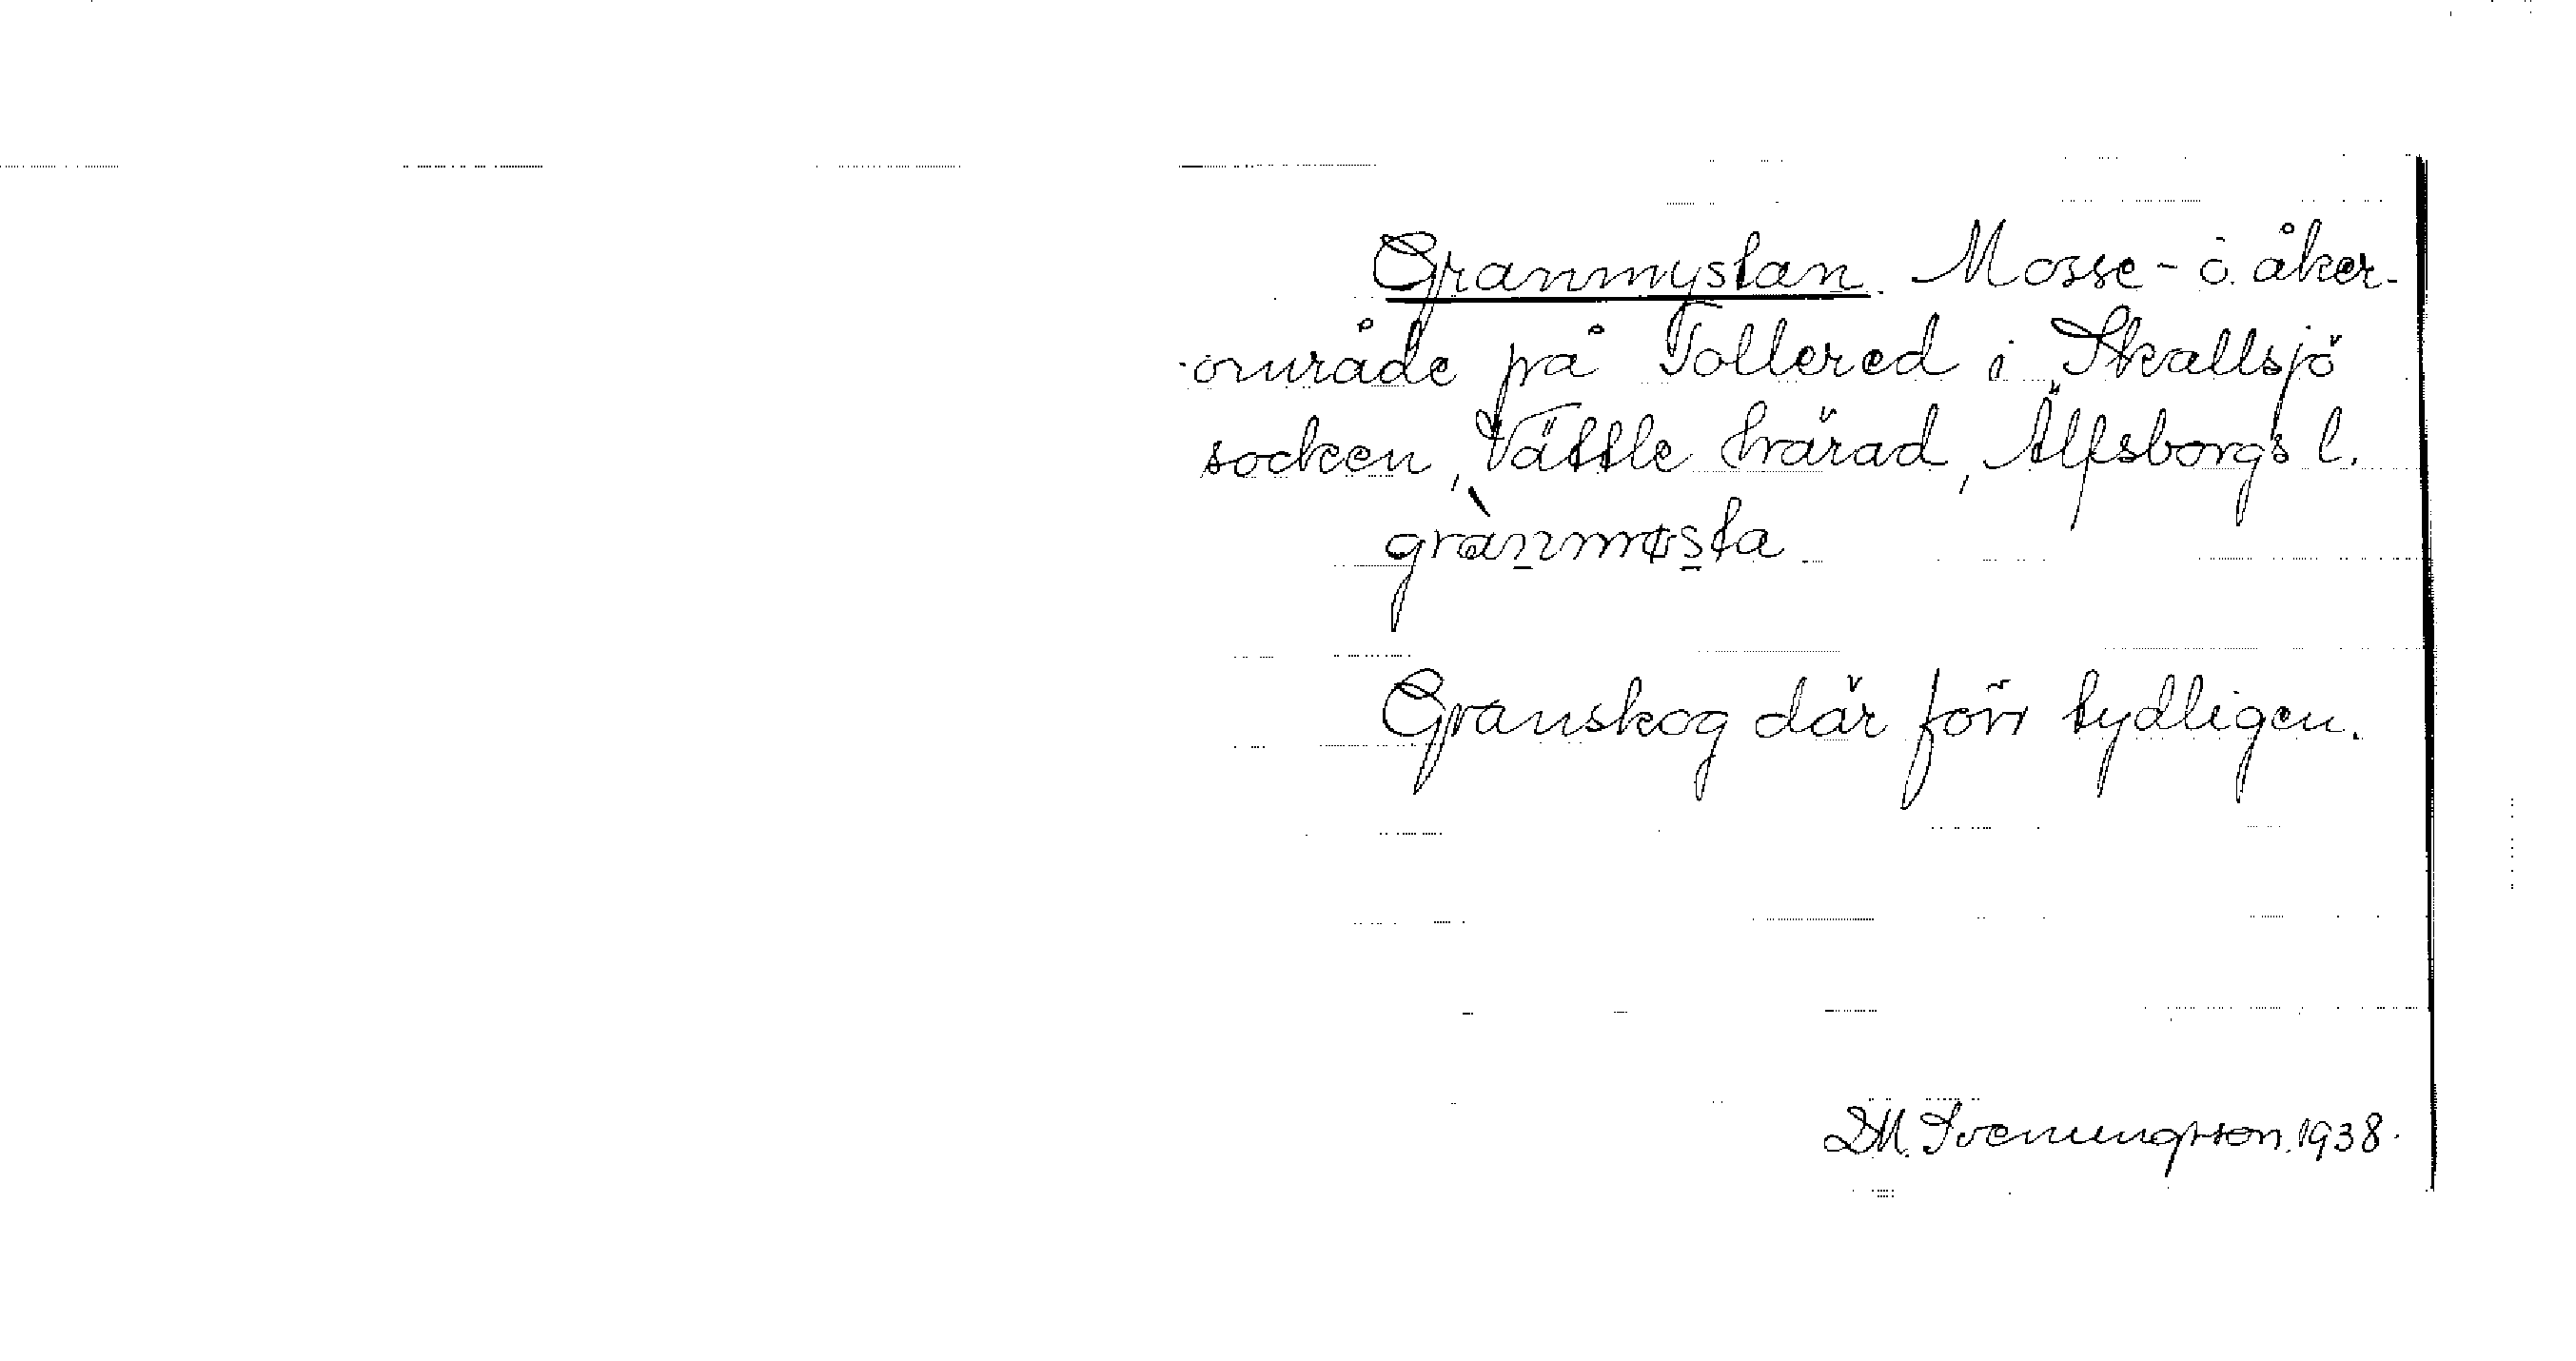 Granmystan. Mosse- o. åker-
område på Tollered i Skallsjö
socken, Vättle härad, Älfsborgs l.
grànmøsta
Granskog där förr tydligen.
D.M. Svenungsson. 1938.